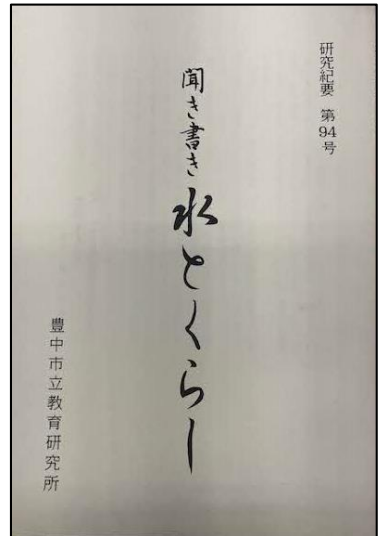 研究紀要 第94号
聞き書き 水とくらし
豊中市立教育研究所